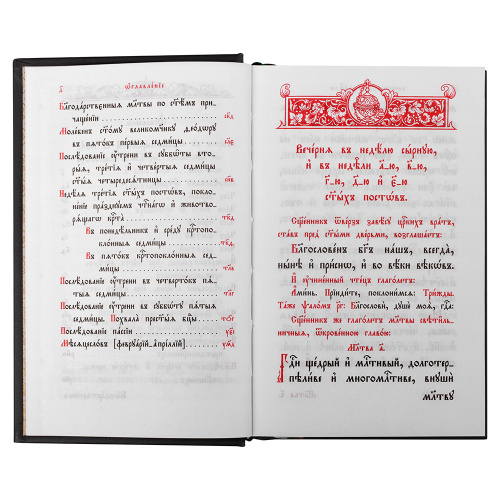 Ѡглавле́нїе
Благода́рственныѧ мл҃твы по ст҃ѣ́мъ при-
чаще́нїи
Моле́бенъ ст҃о́мꙋ великомч҃нкꙋ ѳео́дѡрꙋ
въ пѧто́къ пе́рвыѧ седми́цы
Послѣ́дованїе ᲂу҆́трени въ сꙋббѡ́ты вто-
ры́ѧ, тре́тїѧ и҆ четве́ртыѧ седми́цы
ст҃ы́ѧ четыредесѧ́тницы
Недѣ́лѧ тре́тїѧ ст҃ы́хъ постѡ́въ, покло-
не́нїе пра́зднꙋемъ чⷭ҇тна́гѡ и҆ животво-
рѧ́щагѡ крⷭ҇та̀
Въ понедѣ́льникъ и҆ сре́дꙋ крⷭ҇топо-
кло́нныѧ седми́цы
Въ пѧто́къ крⷭ҇топокло́нныѧ сед-
ми́цы
Послѣ́дованїе ᲂу҆́трени въ четверто́къ пѧ́-
тыѧ седми́цы
Послѣ́дованїе ᲂу҆́трени въ сꙋббѡ́тꙋ пѧ́тыѧ
седми́цы. Похвала̀ прест҃ы́ѧ бц҃ы
Послѣ́дованїе пассі́и
Мѣсѧцесло́въ [феврꙋа́рїй–а҆прі́лїй]
Вече́рнѧ въ недѣ́лю сы́рнꙋю,
и҆ въ недѣ́ли а҃-ю, в҃-ю,
г҃-ю, д҃-ю и҆ є҃-ю
ст҃ы́хъ постѡ́въ.
Сщ҃е́нникъ ѿве́рзъ завѣ́сꙋ цр҃кихъ вра́тъ,
ста́въ пред̾ ст҃ы́ми две́рьми, возглаша́етъ:
Бл҃гослове́нъ бг҃ъ на́шъ, всегда̀,
ны́нѣ и҆ при́снѡ, и҆ во вѣ́ки вѣкѡ́въ.
И҆ ᲂу҆чине́нный чте́цъ глаго́летъ:
А҆ми́нь. Прїиди́те, поклони́мсѧ: Три́жды.
Та́же ѱало́мъ рг҃: Благословѝ, дꙋшѐ моѧ̀, гдⷭ҇а:
Сщ҃е́нникъ же глаго́летъ мл҃твы свѣти́ль-
ничныѧ, ѿкрове́нною главо́ю:
Мл҃тва а҃
Гдⷭ҇и ще́дрый и҆ млⷭ҇тивый, долготер-
пѣли́ве и҆ многомлⷭ҇тиве, внꙋшѝ
мл҃твꙋ